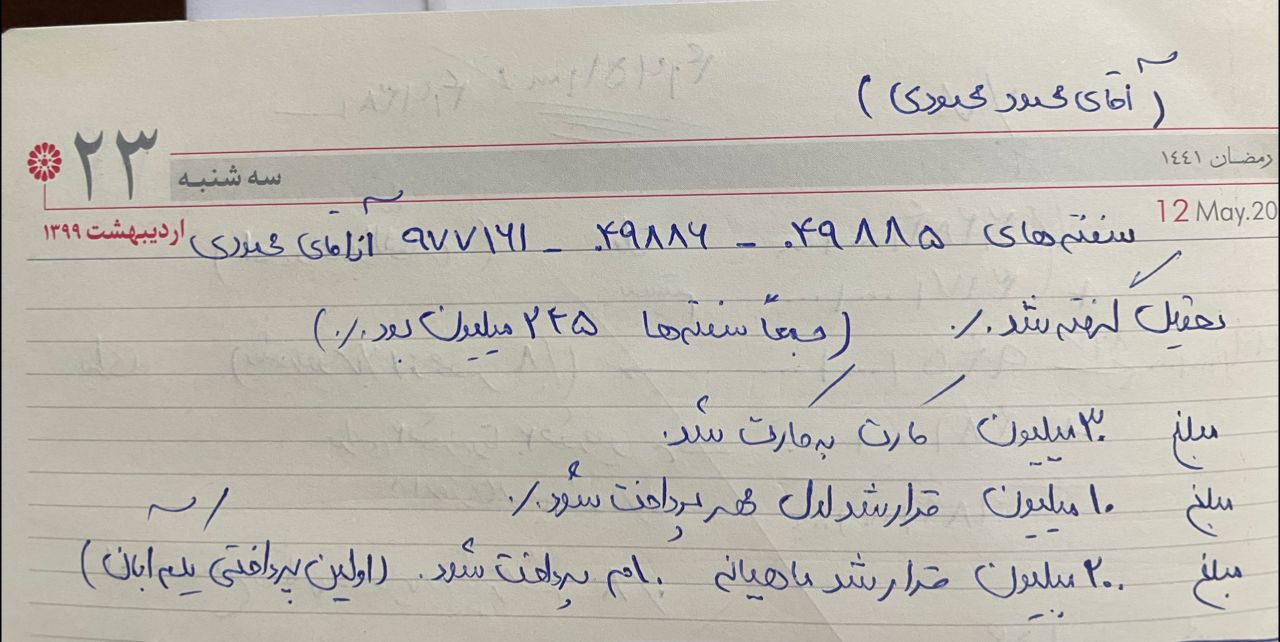 (آقای محمود محمودی)
رمضان ١٤٤١
۲۳ سه شنبه
12 May.20
اردیبهشت ۱۳۹۹
سفته‌های ۰۴۹۸۸۵ - ۰۴۹۸۸۶ - ۹۷۷۱۶۱ از آقای محمودی
تحویل گرفته شد ./. (جمعاً سفته‌ها ۲۴۵ میلیون بود ./.)
مبلغ ۳۰ میلیون کارت به کارت شد.
مبلغ ۱۰ میلیون قرار شد اول مهر پرداخت شود ./.
مبلغ ۲۰۰ میلیون قرار شد ماهیانه پرداخت شود. (اولین پرداختی یکم ابان)